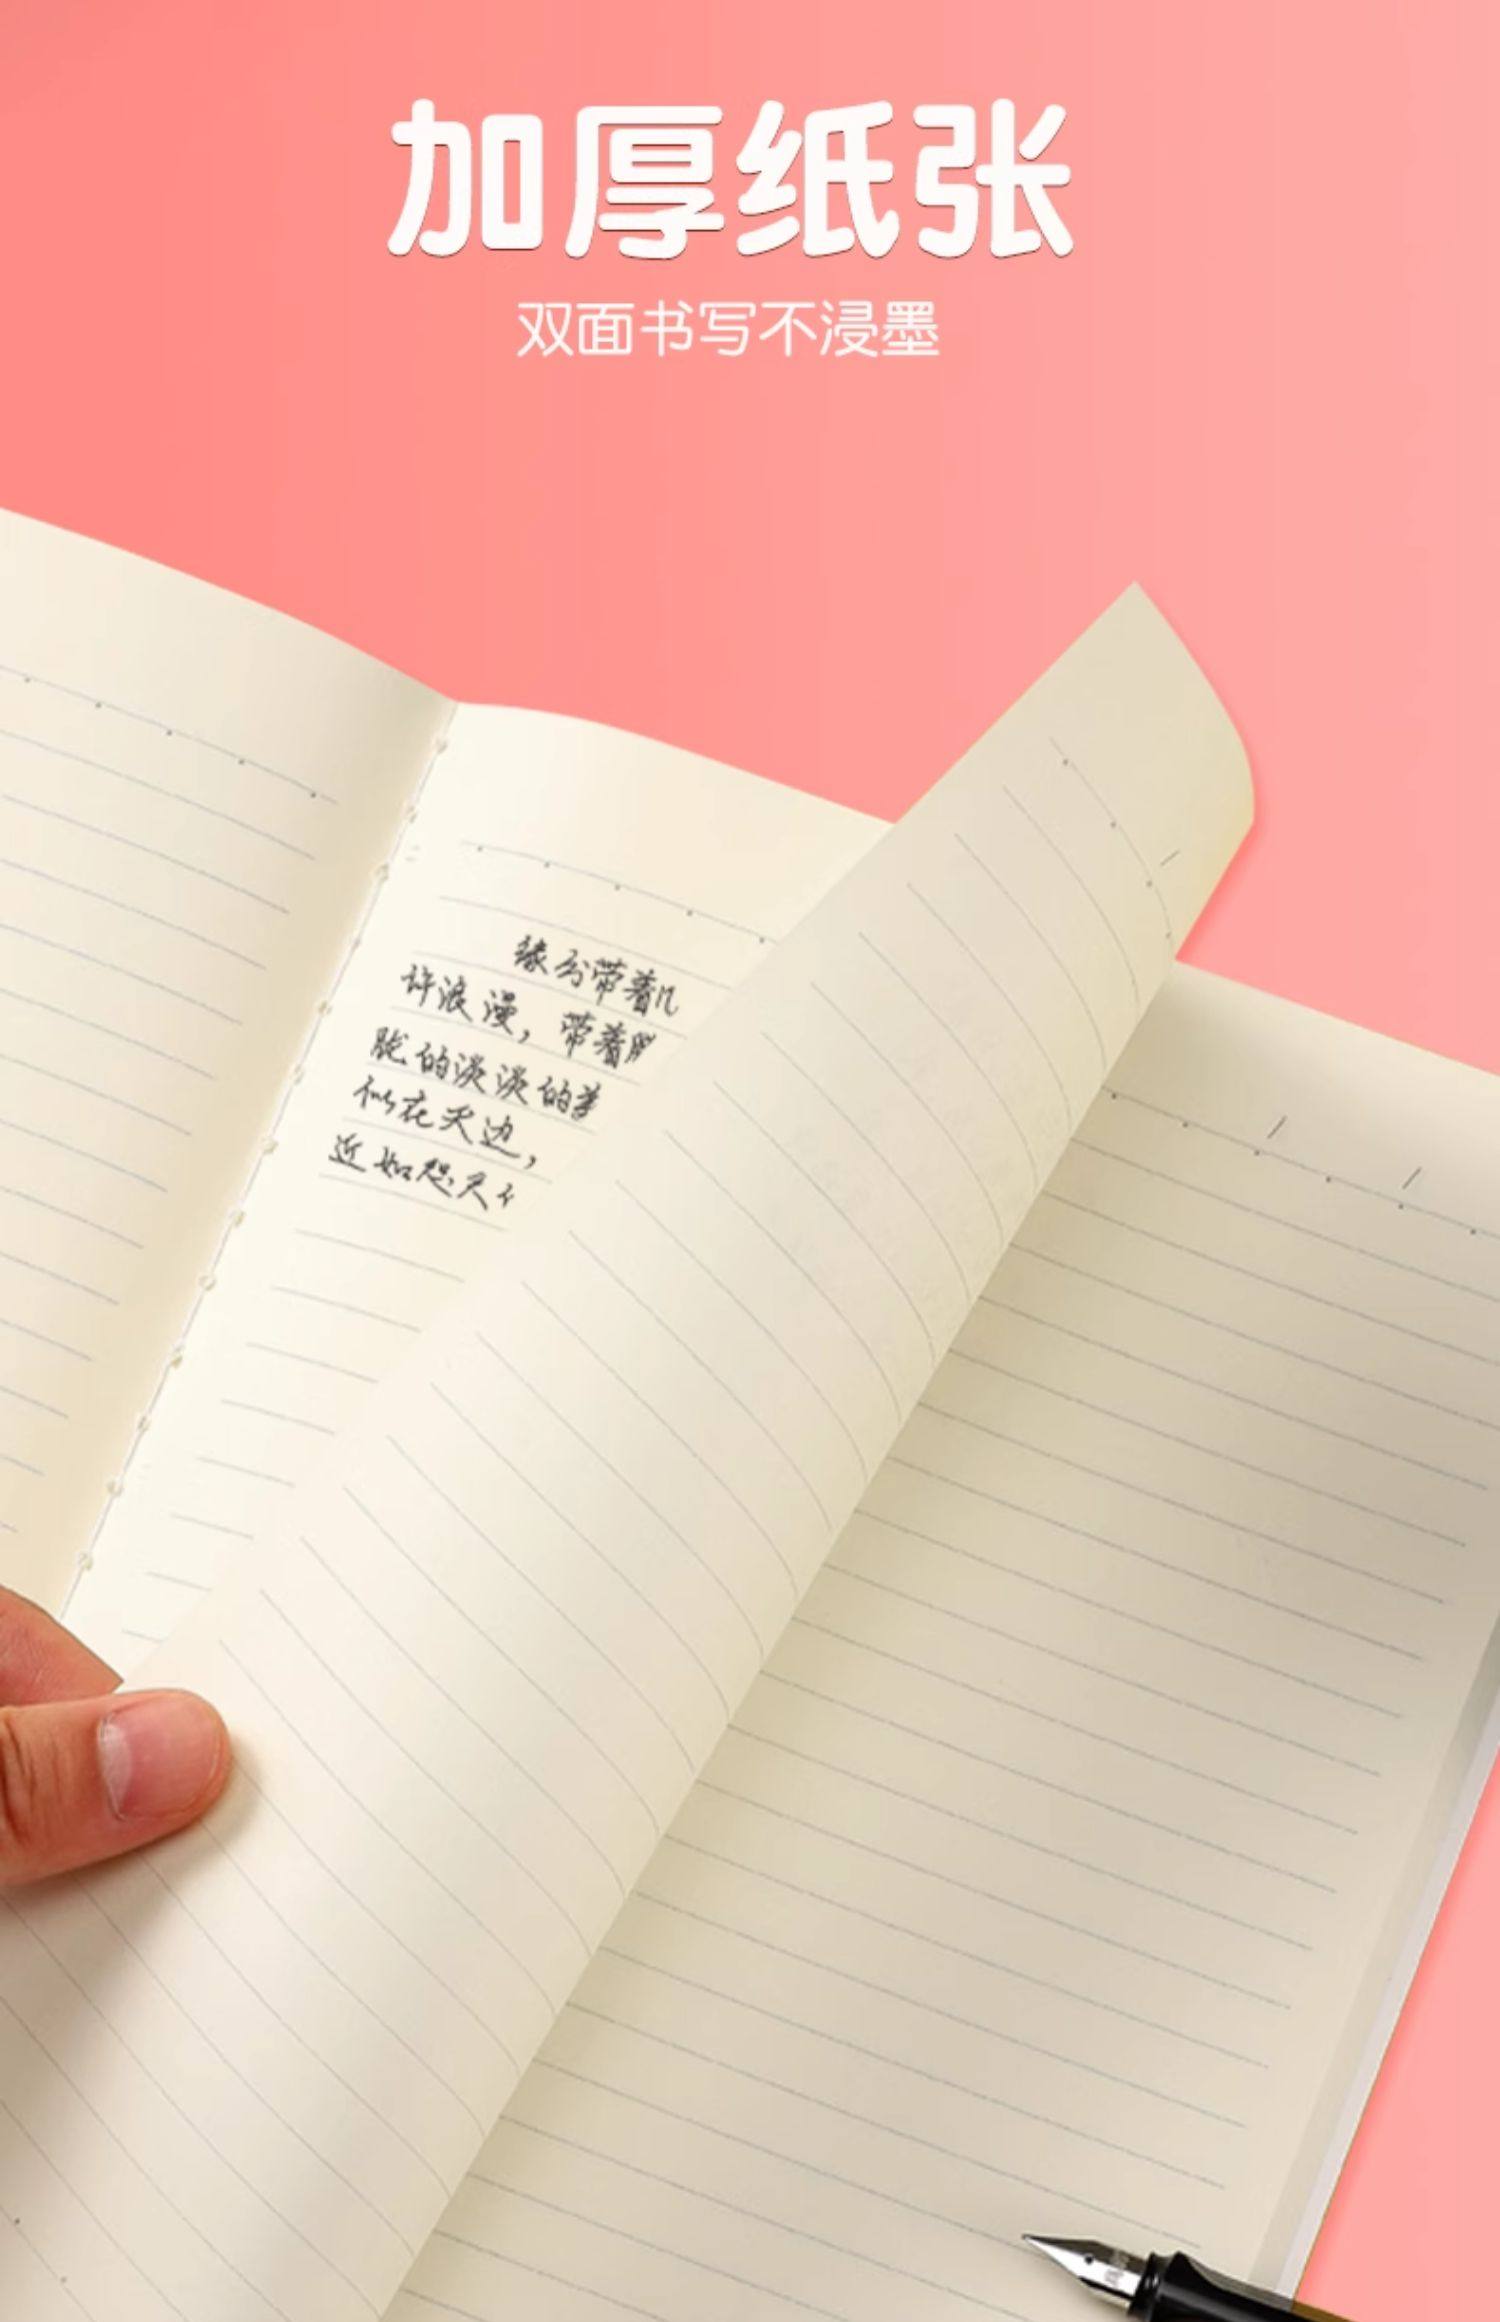 加厚纸张
双面书写不浸墨
缘分带着几
许浪漫，带着
胧的淡淡的
似在天边，
近如咫尺